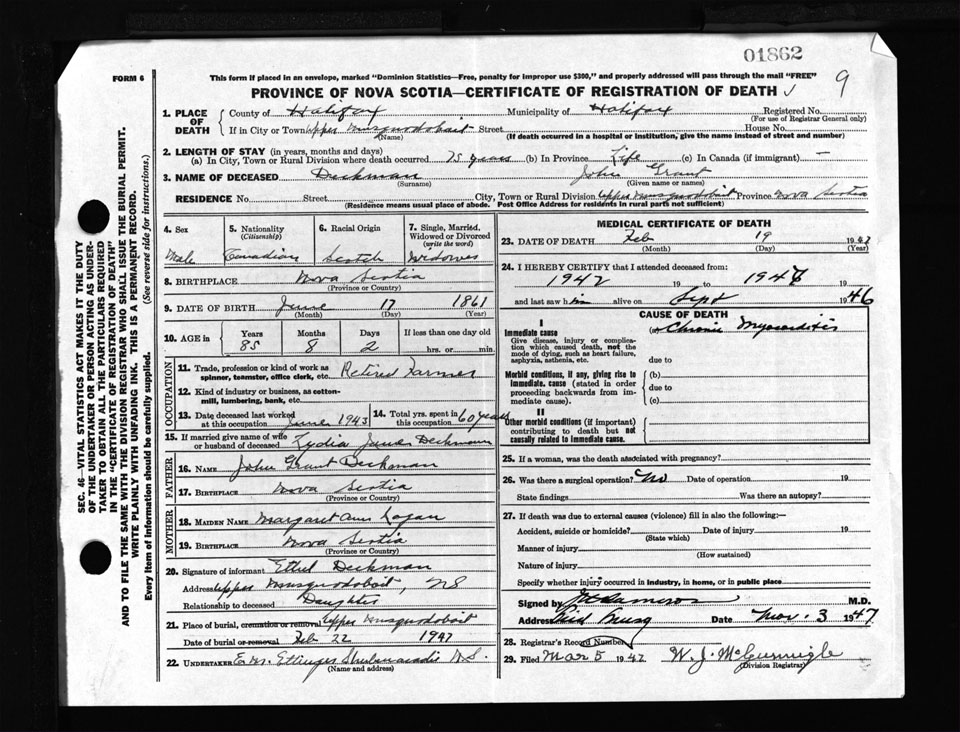 01862
9
FORM 6
This form if placed in an envelope, marked "Dominion Statistics—Free, penalty for improper use $300," and properly addressed will pass through the mail "FREE"
PROVINCE OF NOVA SCOTIA—CERTIFICATE OF REGISTRATION OF DEATH
SEC. 46—VITAL STATISTICS ACT MAKES IT THE DUTY
OF THE UNDERTAKER OR PERSON ACTING AS UNDER-
TAKER TO OBTAIN ALL THE PARTICULARS REQUIRED
IN THE "CERTIFICATE OF REGISTRATION OF DEATH"
AND TO FILE THE SAME WITH THE DIVISION REGISTRAR WHO SHALL ISSUE THE BURIAL PERMIT.
WRITE PLAINLY WITH UNFADING INK. THIS IS A PERMANENT RECORD.
Every item of information should be carefully supplied. (See reverse side for instructions.)
1. PLACE OF DEATH County of Halifax Municipality of Halifax Registered No.
(For use of Registrar General only)
If in City or Town Upper Musquodoboit Street House No.
(Name) (If death occurred in a hospital or institution, give the name instead of street and number)
2. LENGTH OF STAY (in years, months and days)
(a) In City, Town or Rural Division where death occurred 75 years (b) In Province Life (c) In Canada (if immigrant) —
3. NAME OF DECEASED Deckman John Grant
(Surname) (Given name or names)
RESIDENCE No. Street City, Town or Rural Division Upper Musquodoboit Province Nova Scotia
(Residence means usual place of abode. Post Office Address for residents in rural parts not sufficient)
4. Sex Male
5. Nationality (Citizenship) Canadian
6. Racial Origin Scotch
7. Single, Married, Widowed or Divorced (write the word) Widower
8. BIRTHPLACE Nova Scotia
(Province or Country)
9. DATE OF BIRTH June 17 1861
(Month) (Day) (Year)
10. AGE in Years Months Days If less than one day old
85 8 2 hrs. or min.
OCCUPATION
11. Trade, profession or kind of work as
spinner, teamster, office clerk, etc. Retired Farmer
12. Kind of industry or business, as cotton-
mill, lumbering, bank, etc.
13. Date deceased last worked at this occupation June 1943
14. Total yrs. spent in this occupation 60 years
15. If married give name of wife
or husband of deceased Lydia Deckman
FATHER
16. NAME John Grant Deckman
17. BIRTHPLACE Nova Scotia
(Province or Country)
MOTHER
18. MAIDEN NAME Margaret Ann Logan
19. BIRTHPLACE Nova Scotia
(Province or Country)
20. Signature of informant Ethel Deckman
Address Upper Musquodoboit, NS
Relationship to deceased Daughter
21. Place of burial, cremation or removal Upper Musquodoboit
Date of burial or removal Feb 22 1947
22. UNDERTAKER Ettinger Shubenacadie N.S.
(Name and address)
MEDICAL CERTIFICATE OF DEATH
23. DATE OF DEATH Feb 19 1947
(Month) (Day) (Year)
24. I HEREBY CERTIFY that I attended deceased from:
1942 19 to 1946 19
and last saw him alive on Sept 1946
CAUSE OF DEATH
I
Immediate cause (a) Chronic Myocarditis
Give disease, injury or complica-
tion which caused death, not the
mode of dying, such as heart failure,
asphyxia, asthenia, etc.
due to
Morbid conditions, if any, giving rise to (b)
immediate cause (stated in order due to
proceeding backwards from im-
mediate cause). (c)
II
Other morbid conditions (if important)
contributing to death but not
causally related to immediate cause.
25. If a woman, was the death associated with pregnancy?
26. Was there a surgical operation? No Date of operation 19
State findings Was there an autopsy?
27. If death was due to external causes (violence) fill in also the following:—
Accident, suicide or homicide? Date of injury 19
(State which)
Manner of injury
(How sustained)
Nature of injury
Specify whether injury occurred in industry, in home, or in public place
Signed by M.D.
Address Mid Musq Date Mar. 3 1947
28. Registrar's Record Number
29. Filed Mar 5 1947 W. J. McGunnigle
(Division Registrar)